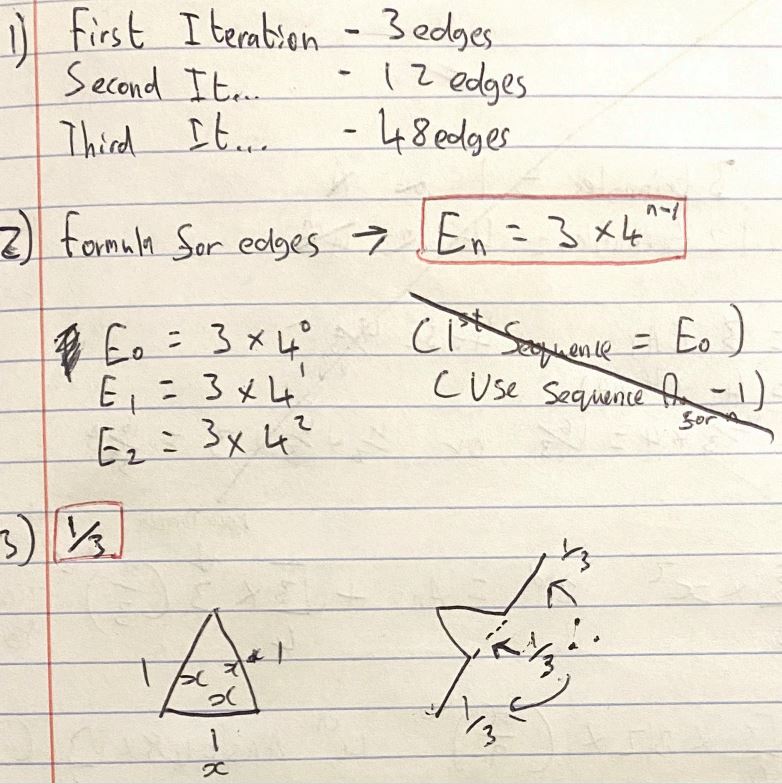 1) First Iteration - 3 edges
Second It... - 12 edges
Third It... - 48 edges
2) Formula for edges → En = 3 × 4^n-1
E0 = 3 × 4^0 (1st Sequence = E0)
E1 = 3 × 4^1 (Use Sequence n - 1)
for n
E2 = 3 × 4^2
3) 1/3
1/3
1 x x 1
x
1/3
1/3
1
x